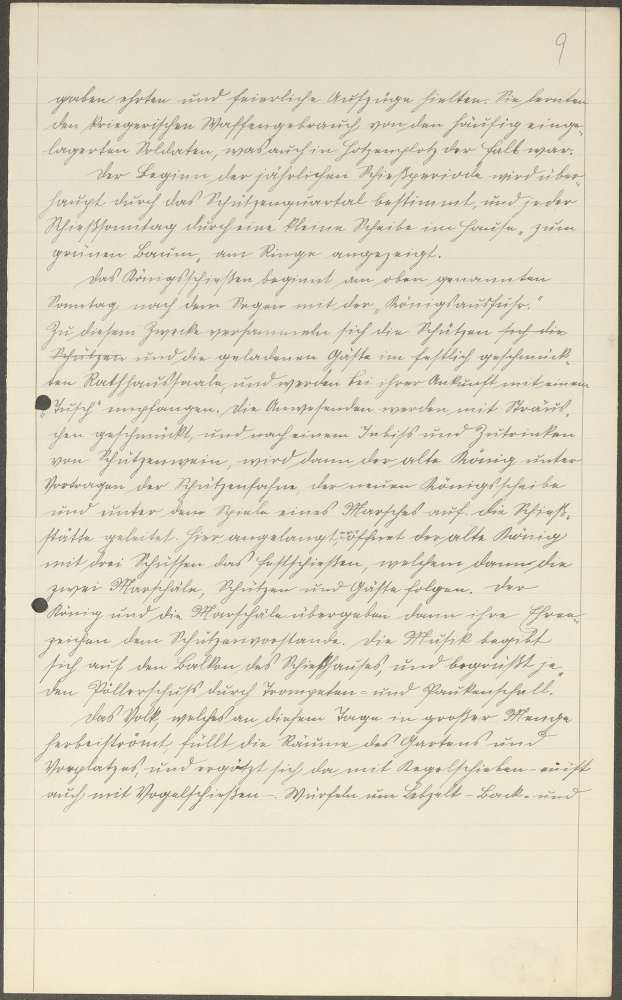 9
graben ehrten und feierliche Aufzüge hielten. Sie lernten
den kriegerischen Waffengebrauch von den häufig einge-
lagerten Soldaten, was auch in Hotzenplotz der Fall war.
Der Beginn der jährlichen Schießperiode wird über-
haupt durch das Schützenquartal bestimmt, und jeder
Schießsonntag durch eine kleine Scheibe im Hause „zum
grünen Baum“ am Ringe angezeigt.
Das Königsschießen beginnt am oben genannten
Sonntag nach dem Segen mit der „Königsausfuhr.“
Zu diesem Zwecke versammeln sich die Schützen sich die
Schützen und die geladenen Gäste im festlich geschmück-
ten Rathhaussaale, und werden bei ihrer Ankunft mit einem
„Tusch“ empfangen. Die Anwesenden werden mit Sträus-
chen geschmückt, und nach einem Imbiss und Zutrinken
von Schützenwein, wird dann der alte König unter
Vortragen der Schützenfahne, der neuen Königsscheibe
und unter dem Spiele eines Marsches auf die Schieß-
stätte geleitet. Hier angelangt, öffnet der alte König
mit drei Schüssen das Festschießen, welchem dann die
zwei Marschäle, Schützen und Gäste folgen. Der
König und die Marschäle übergeben dann ihre Ehren-
zeichen dem Schützenvorstande. Die Musik begibt
sich auf den Balkon des Schießhauses, und begrüßt je-
den Pöllerschuss durch Trompeten- und Paukenschall.
Das Volk, welches an diesem Tage in großer Menge
herbeiströmt, füllt die Räume des Gartens und
Vorplatzes, und ergötzt sich da mit Kegelschieben –
auch mit Vogelschießen –. Würfeln um Lebzelt- Back- und